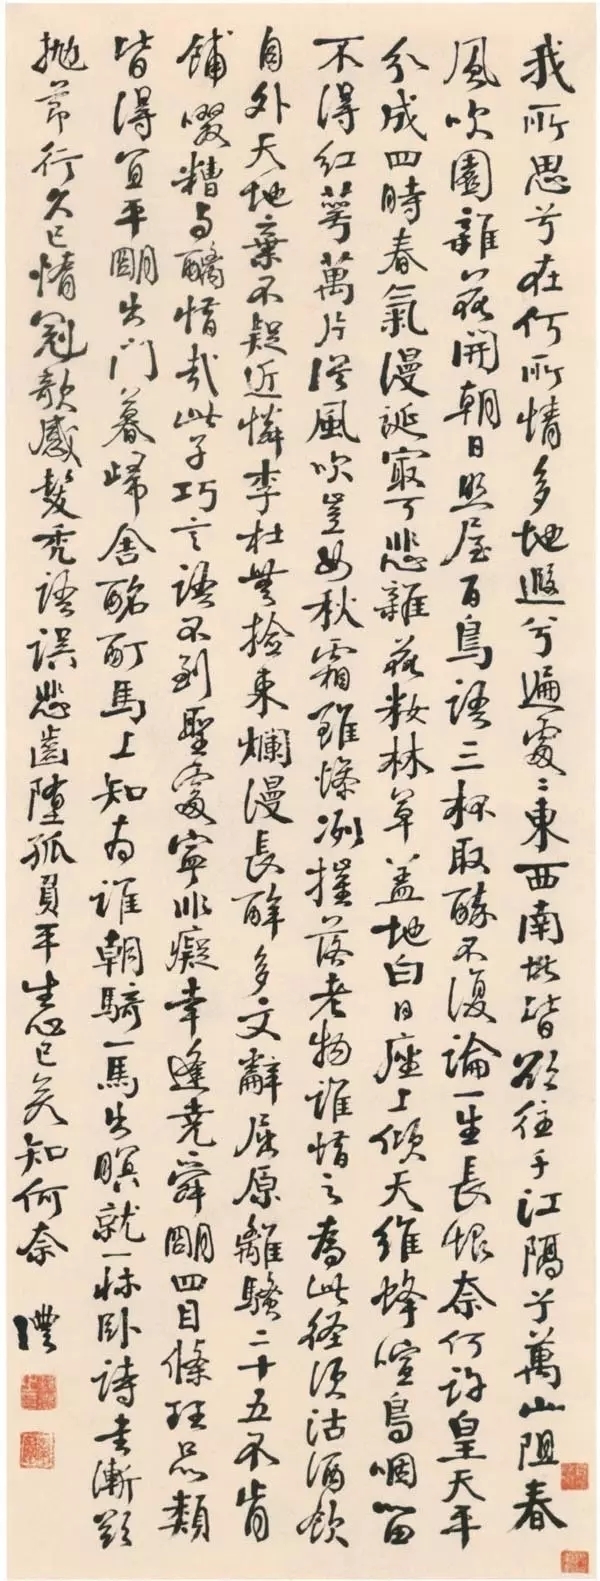 我所思兮在何所情多地遐兮遍處〻東西南北皆欲往千江隔兮萬山阻春
風吹園雜花開朝日照屋百鳥語三杯取醉不復論一生長恨奈何許皇天平
分成四時春氣漫誕最可悲雜花妝林草蓋地白日座上傾天維蜂喧鳥咽留
不得紅萼萬片從風吹豈如秋霜雖慘冽摧落老物誰惜之為此徑須沽酒飲
自外天地棄不疑近憐李杜無檢束爛漫長醉多文辭屈原離騷二十五不肯
餔啜糟與醨惜哉此子巧言語不到聖處寧非癡幸逢堯舜明四目條理品類
皆得宜平明出門暮歸舍酩酊馬上知為誰朝騎一馬出暝就一床臥詩書漸欲
拋節行久已惰冠欹感髮禿語誤悲齒墮孤負平生心已矣知何奈